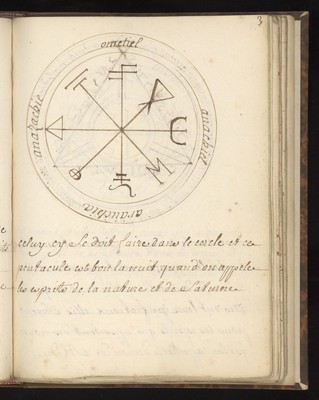 3
ometiel
anachiel
arauchia
anazachie
celuy cy se doit faire dans le cercle et ce
pentacule est bon la nuit quand on appele
les esprits de la nature et de Saturne